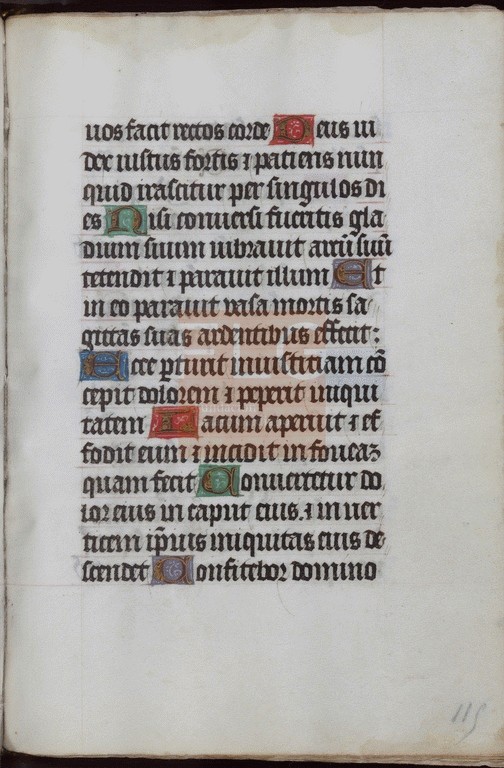 uos facit rectos corde Deus iu
dex iustus fortis ⁊ patiens nun
quid irascitur per singulos di
es Nisi conuersi fueritis gla
dium suum uibrauit arcū suū
tetendit ⁊ parauit illum Et
in eo parauit uasa mortis sa
gittas suas ardentibus effecit:
Ecce ꝑturit iniustitiam cō
cepit dolorem ⁊ peperit iniqui
tatem Lacum aperuit ⁊ ef
fodit eum ⁊ incidit in foueaz
quam fecit Conuertetur do
lor eius in caput eius. ⁊ in uer
ticem ip̄ius iniquitas eius de
scendet Confitebor domino
115